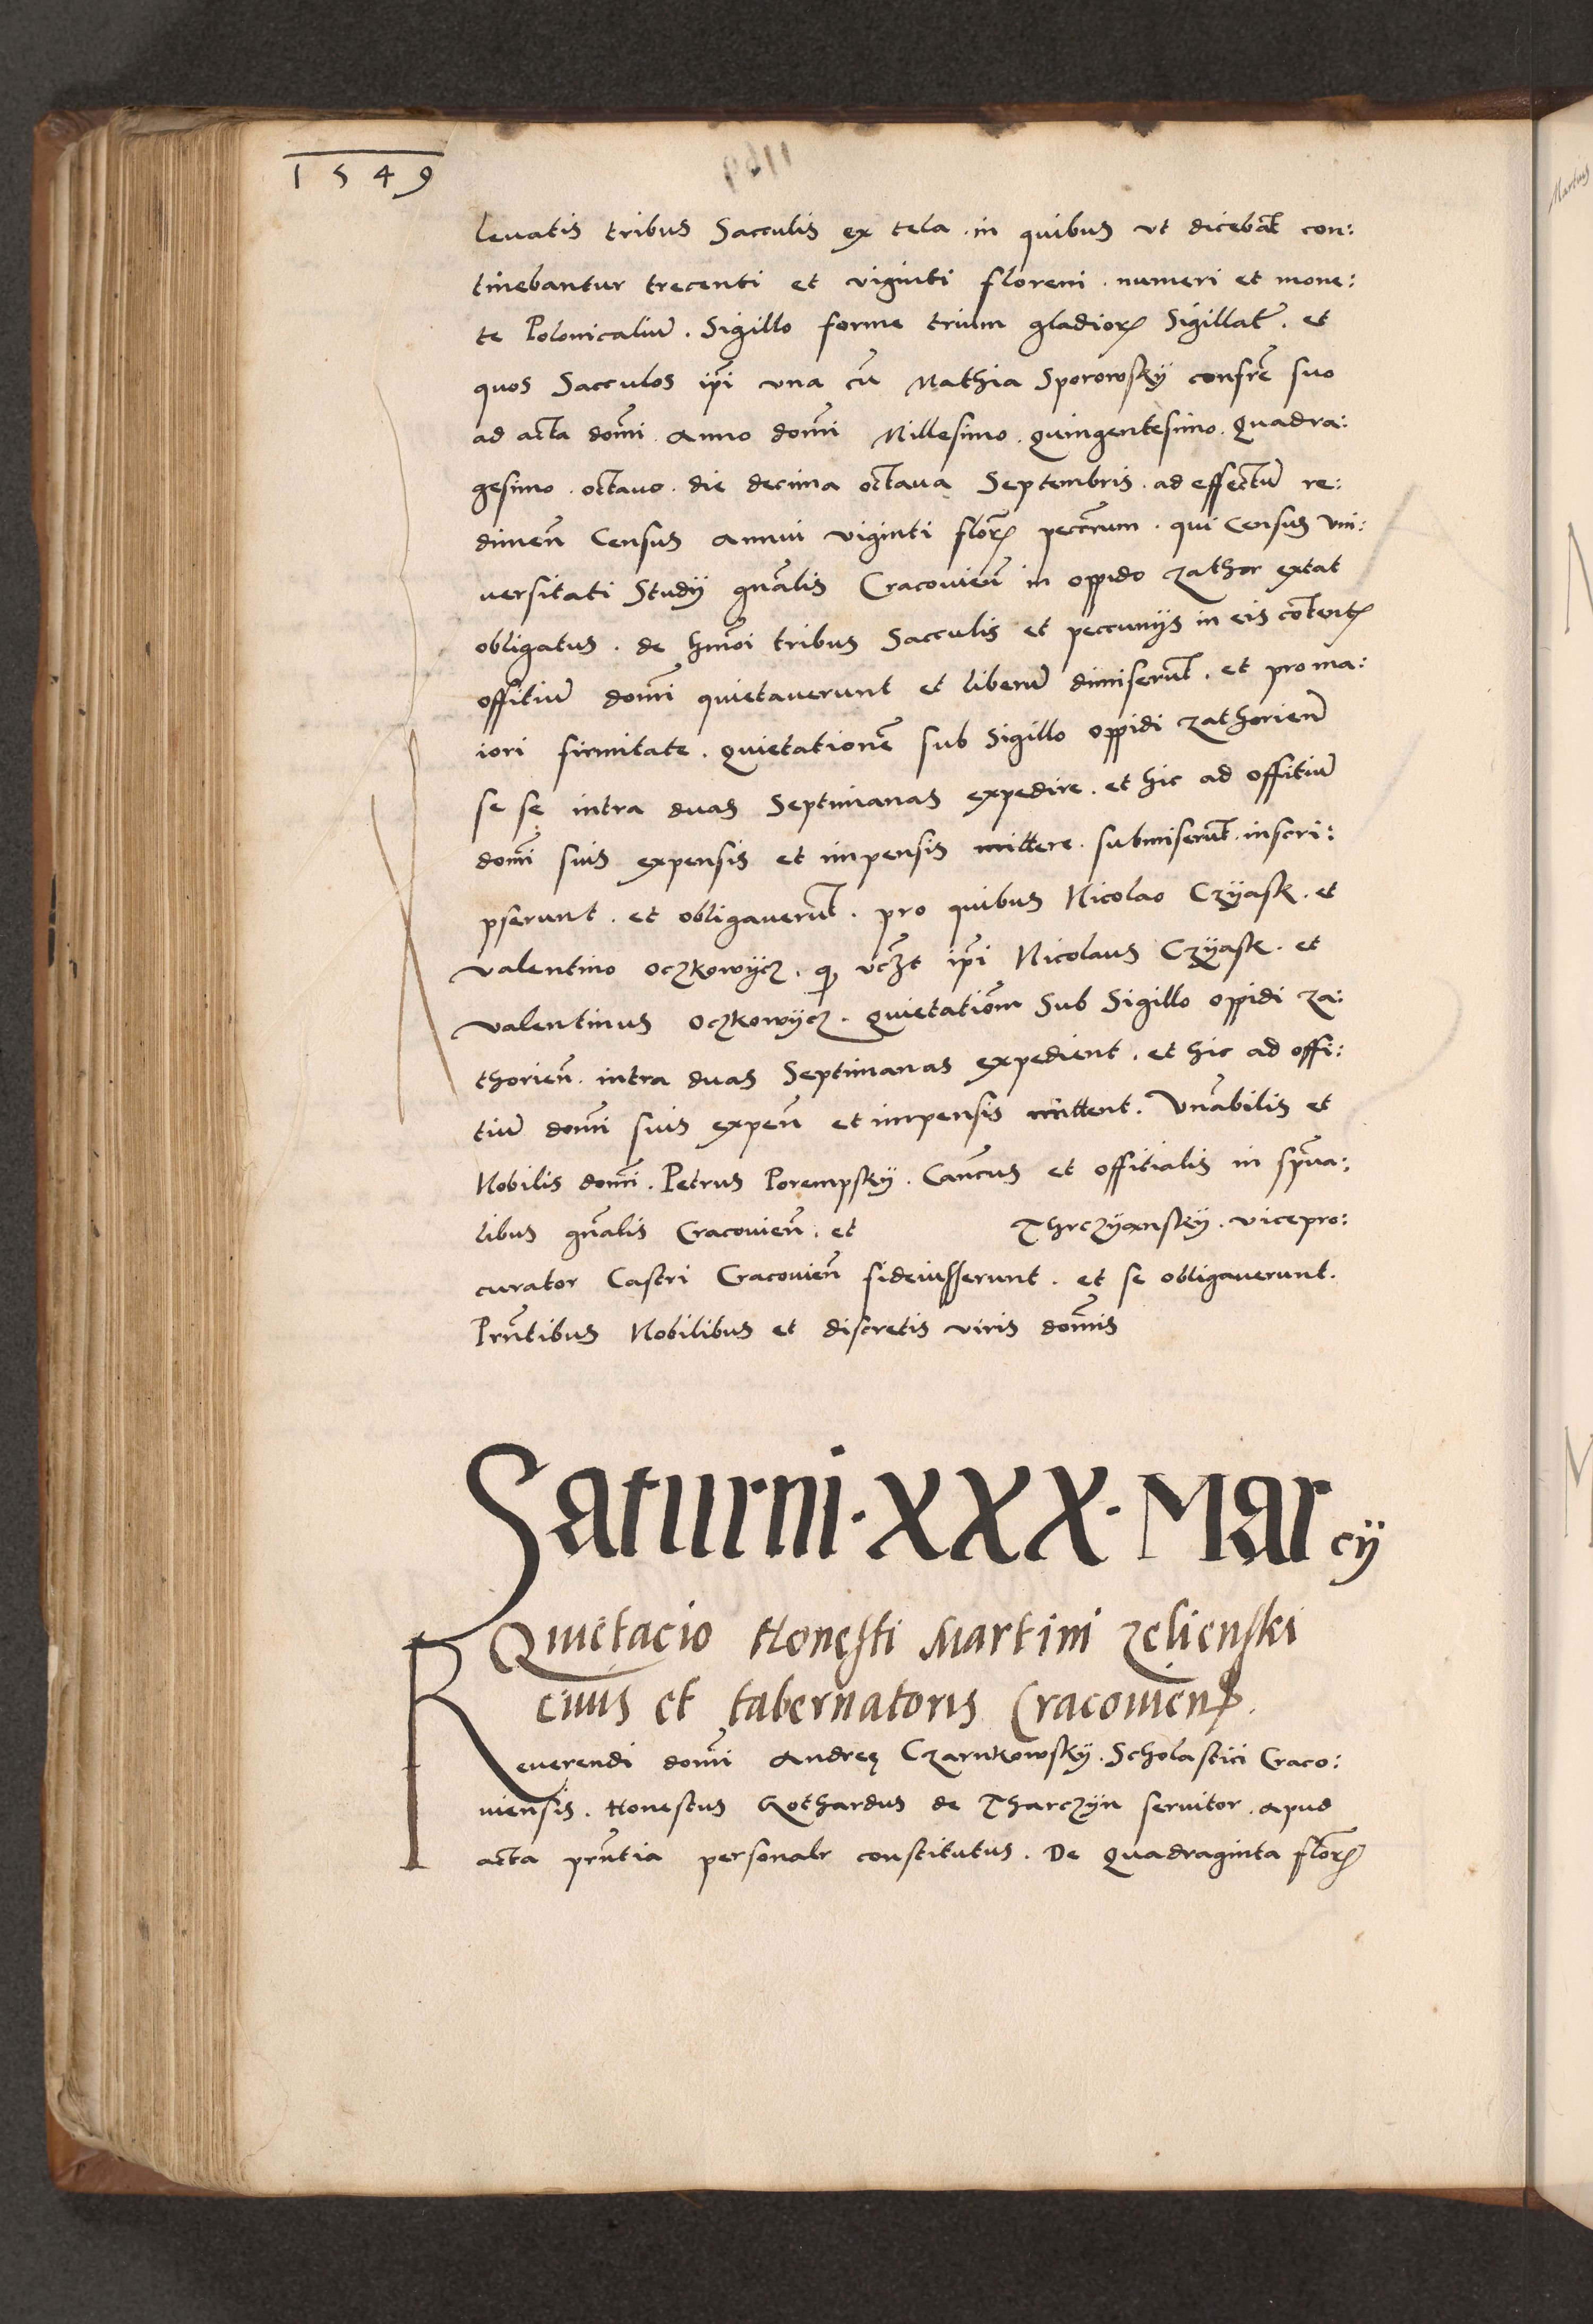 1549
levatis tribus Sacculis ex tela . in quibus ut dicebāt con:
tinebantur trecenti et viginti floreni . numeri et mone:
te Polonicaliū . Sigillo forme trium gladioꝝ Sigillať . et
quos Sacculos ip̄i una cū Mathia Sporowsky confrē suo
ad acta dom̄i . Anno dom̄i Millesimo . quingentesimo . Quadra:
gesimo . octavo . die decima octava Septembris . ad effectū re:
dimen̄ Census annui viginti flor̄ꝝ pecc̄rum . qui Census uni:
versitati Studij gn̄alis Cracovien̄ in oppido Zathor extat
obligatus . de hm̄oi tribus Sacculis et peccunijs in eis cōtentꝝ
offitiū dom̄i quietaverunt et liberū dimiserūt . et pro ma:
iori firmitate . quietationē sub Sigillo oppidi Zathorien̄
se se intra duas Septimanas expedire . et hic ad offitiū
dom̄i suis expensis et impensis mittere . submiserūt . inscri:
pserunt . et obligaverūt . pro quibus Nicolao Czyask . et
Valentino Oczkowycz . ꝙ vcꝫt ip̄i Nicolaus Czyask . et
Valentinus Oczkowycz . quietatiōm Sub Sigillo oppidi Za:
thorien̄ . intra duas Septimanas expedient . et hic ad offi:
tiū dom̄i suis expen̄ et impensis mittent . Vn̄abilis et
Nobilis dom̄i . Petrus Porempsky . Can̄cus et offitialis in sp̄ua:
libus gn̄alis Cracovien̄ . et Thrczyansky . vicepro:
curator Castri Cracovien̄ fideiusserunt . et se obligaverunt .
Prn̄tibus Nobilibus et discretis viris dom̄is
Saturni . XXX . Marcij
Quietacio Honesti Martini Zelienski
civis et tabernatoris Cracovien̄ .
Reverendi dom̄i Andreę Czarnkowsky . Scholastici Craco:
viensis . Honestus Gothardus de Tharczyn servitor . apud
acta prn̄tia personalr constitutus . De Quadraginta flor̄ꝝ